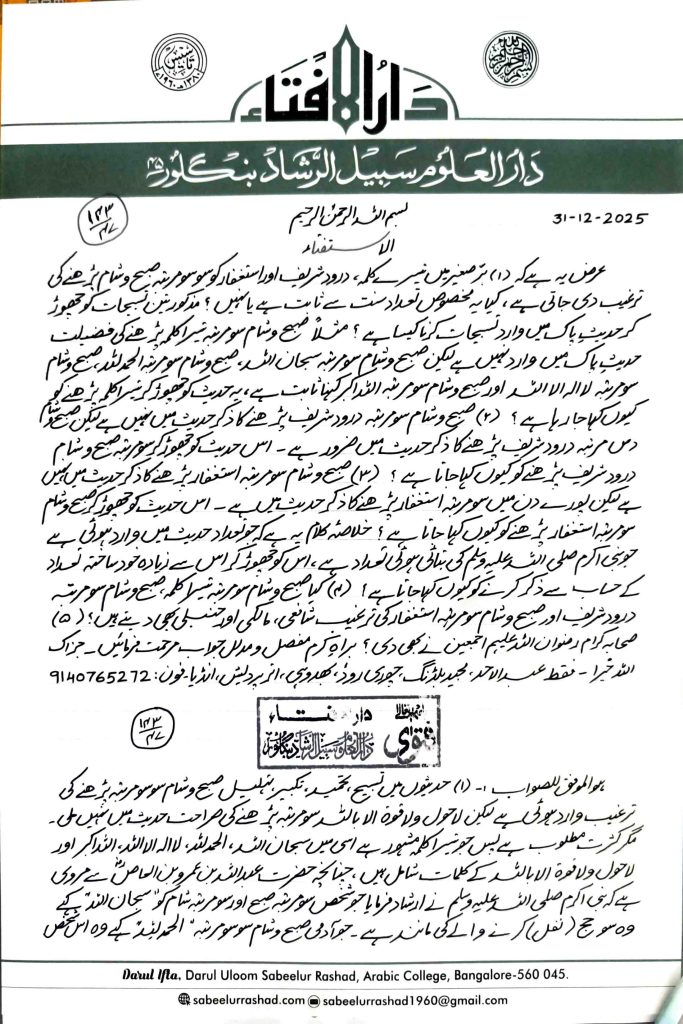 دَارُالاِفْتَاء
دَارُالعُلُوم سَبِيلُ الرَّشَاد بنگلور ۴۵
۱۴۳/۴۷
بسم اللہ الرحمن الرحیم
31-12-2025
الاستفتاء
عرض یہ ہے کہ (۱) برّصغیر میں تیسرے کلمہ، درود شریف اور استغفار کو سو سو مرتبہ صبح و شام پڑھنے کی
ترغیب دی جاتی ہے، کیا یہ مخصوص تعداد سنت سے ثابت ہے یا نہیں؟ مذکورہ تین تسبیحات کو چھوڑ
کر حدیث پاک میں وارد تسبیحات کرنا کیسا ہے؟ مثلاً صبح و شام سو مرتبہ تیسرا کلمہ پڑھنے کی فضیلت
حدیث پاک میں وارد نہیں ہے لیکن صبح و شام سو مرتبہ سبحان اللہ، صبح و شام سو مرتبہ الحمد للہ، صبح و شام
سو مرتبہ لا الہ الا اللہ اور صبح و شام سو مرتبہ اللہ اکبر کہنا ثابت ہے، یہ حدیث کو چھوڑ کر تیسرا کلمہ پڑھنے کو
کیوں کہا جا رہا ہے؟ (۲) صبح و شام سو مرتبہ درود شریف پڑھنے کا ذکر حدیث میں نہیں ہے لیکن صبح و شام
دس مرتبہ درود شریف پڑھنے کا ذکر حدیث میں ضرور ہے۔ اس حدیث کو چھوڑ کر سو مرتبہ صبح و شام
درود شریف پڑھنے کو کیوں کہا جاتا ہے؟ (۳) صبح و شام سو مرتبہ استغفار پڑھنے کا ذکر حدیث میں نہیں
ہے لیکن پورے دن میں سو مرتبہ استغفار پڑھنے کا ذکر حدیث میں ہے۔ اس حدیث کو چھوڑ کر صبح و شام
سو مرتبہ استغفار پڑھنے کو کیوں کہا جاتا ہے؟ خلاصۂ کلام یہ ہے کہ جو تعداد حدیث میں وارد ہوئی ہے
جو نبی اکرم صلی اللہ علیہ وسلم کی بتائی ہوئی تعداد ہے، اس کو چھوڑ کر اس سے زیادہ خود ساختہ تعداد
کے حساب سے ذکر کرنے کو کیوں کہا جاتا ہے؟ (۴) کیا صبح و شام سو مرتبہ تیسرا کلمہ، صبح و شام سو مرتبہ
درود شریف اور صبح و شام سو مرتبہ استغفار کی ترغیب شافعی، مالکی اور حنبلی بھی دیتے ہیں؟ (۵)
صحابہ کرام رضوان اللہ علیہم اجمعین نے بھی دی؟ براہ کرم مفصل و مدلل جواب مرحمت فرمائیں۔ جزاک
اللہ خیرا۔ فقط عبد الاحد، مجید بلڈنگ، چوری روڈ، بھدوہی، اتر پردیش، انڈیا۔ فون: 9140765272
۱۴۳/۴۷
دار الافتاء
دارالعلوم سبیل الرشاد بنگلور
ھو الموفق للصواب :- (۱) حدیثوں میں تسبیح، تحمید، تکبیر، تہلیل صبح و شام سو سو مرتبہ پڑھنے کی
ترغیب وارد ہوئی ہے لیکن لا حول ولا قوۃ الا باللہ سو مرتبہ پڑھنے کی صراحت حدیث میں نہیں ملی۔
مگر کثرت مطلوب ہے پس جو تیسرا کلمہ مشہور ہے اسی میں سبحان اللہ، الحمد للہ، لا الہ الا اللہ، اللہ اکبر اور
لا حول ولا قوۃ الا باللہ کے کلمات شامل ہیں، چنانچہ حضرت عبداللہ بن عمرو بن العاصؓ سے مروی
ہے کہ نبی اکرم صلی اللہ علیہ وسلم نے ارشاد فرمایا جو شخص سو مرتبہ صبح اور سو مرتبہ شام کو "سبحان اللہ" کہے
وہ سو حج (نفل) کرنے والے کی مانند ہے۔ جو آدمی صبح و شام سو سو مرتبہ "الحمد للہ" کہے وہ اس شخص
Darul Ifta, Darul Uloom Sabeelur Rashad, Arabic College, Bangalore-560 045.
sabeelurrashad.com sabeelurrashad1960@gmail.com